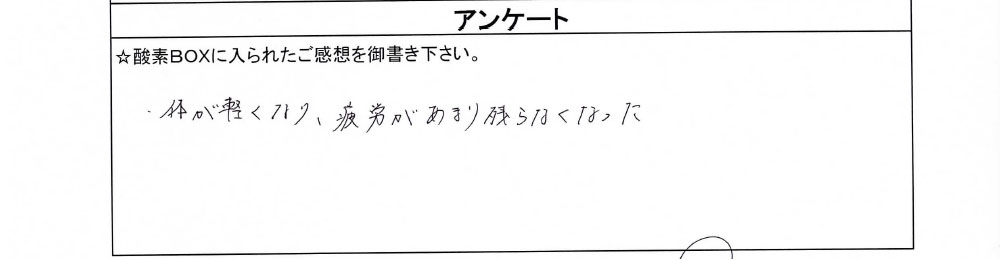 アンケート
☆酸素BOXに入られたご感想を御書き下さい。
・体が軽くなり、疲労があまり残らなくなった